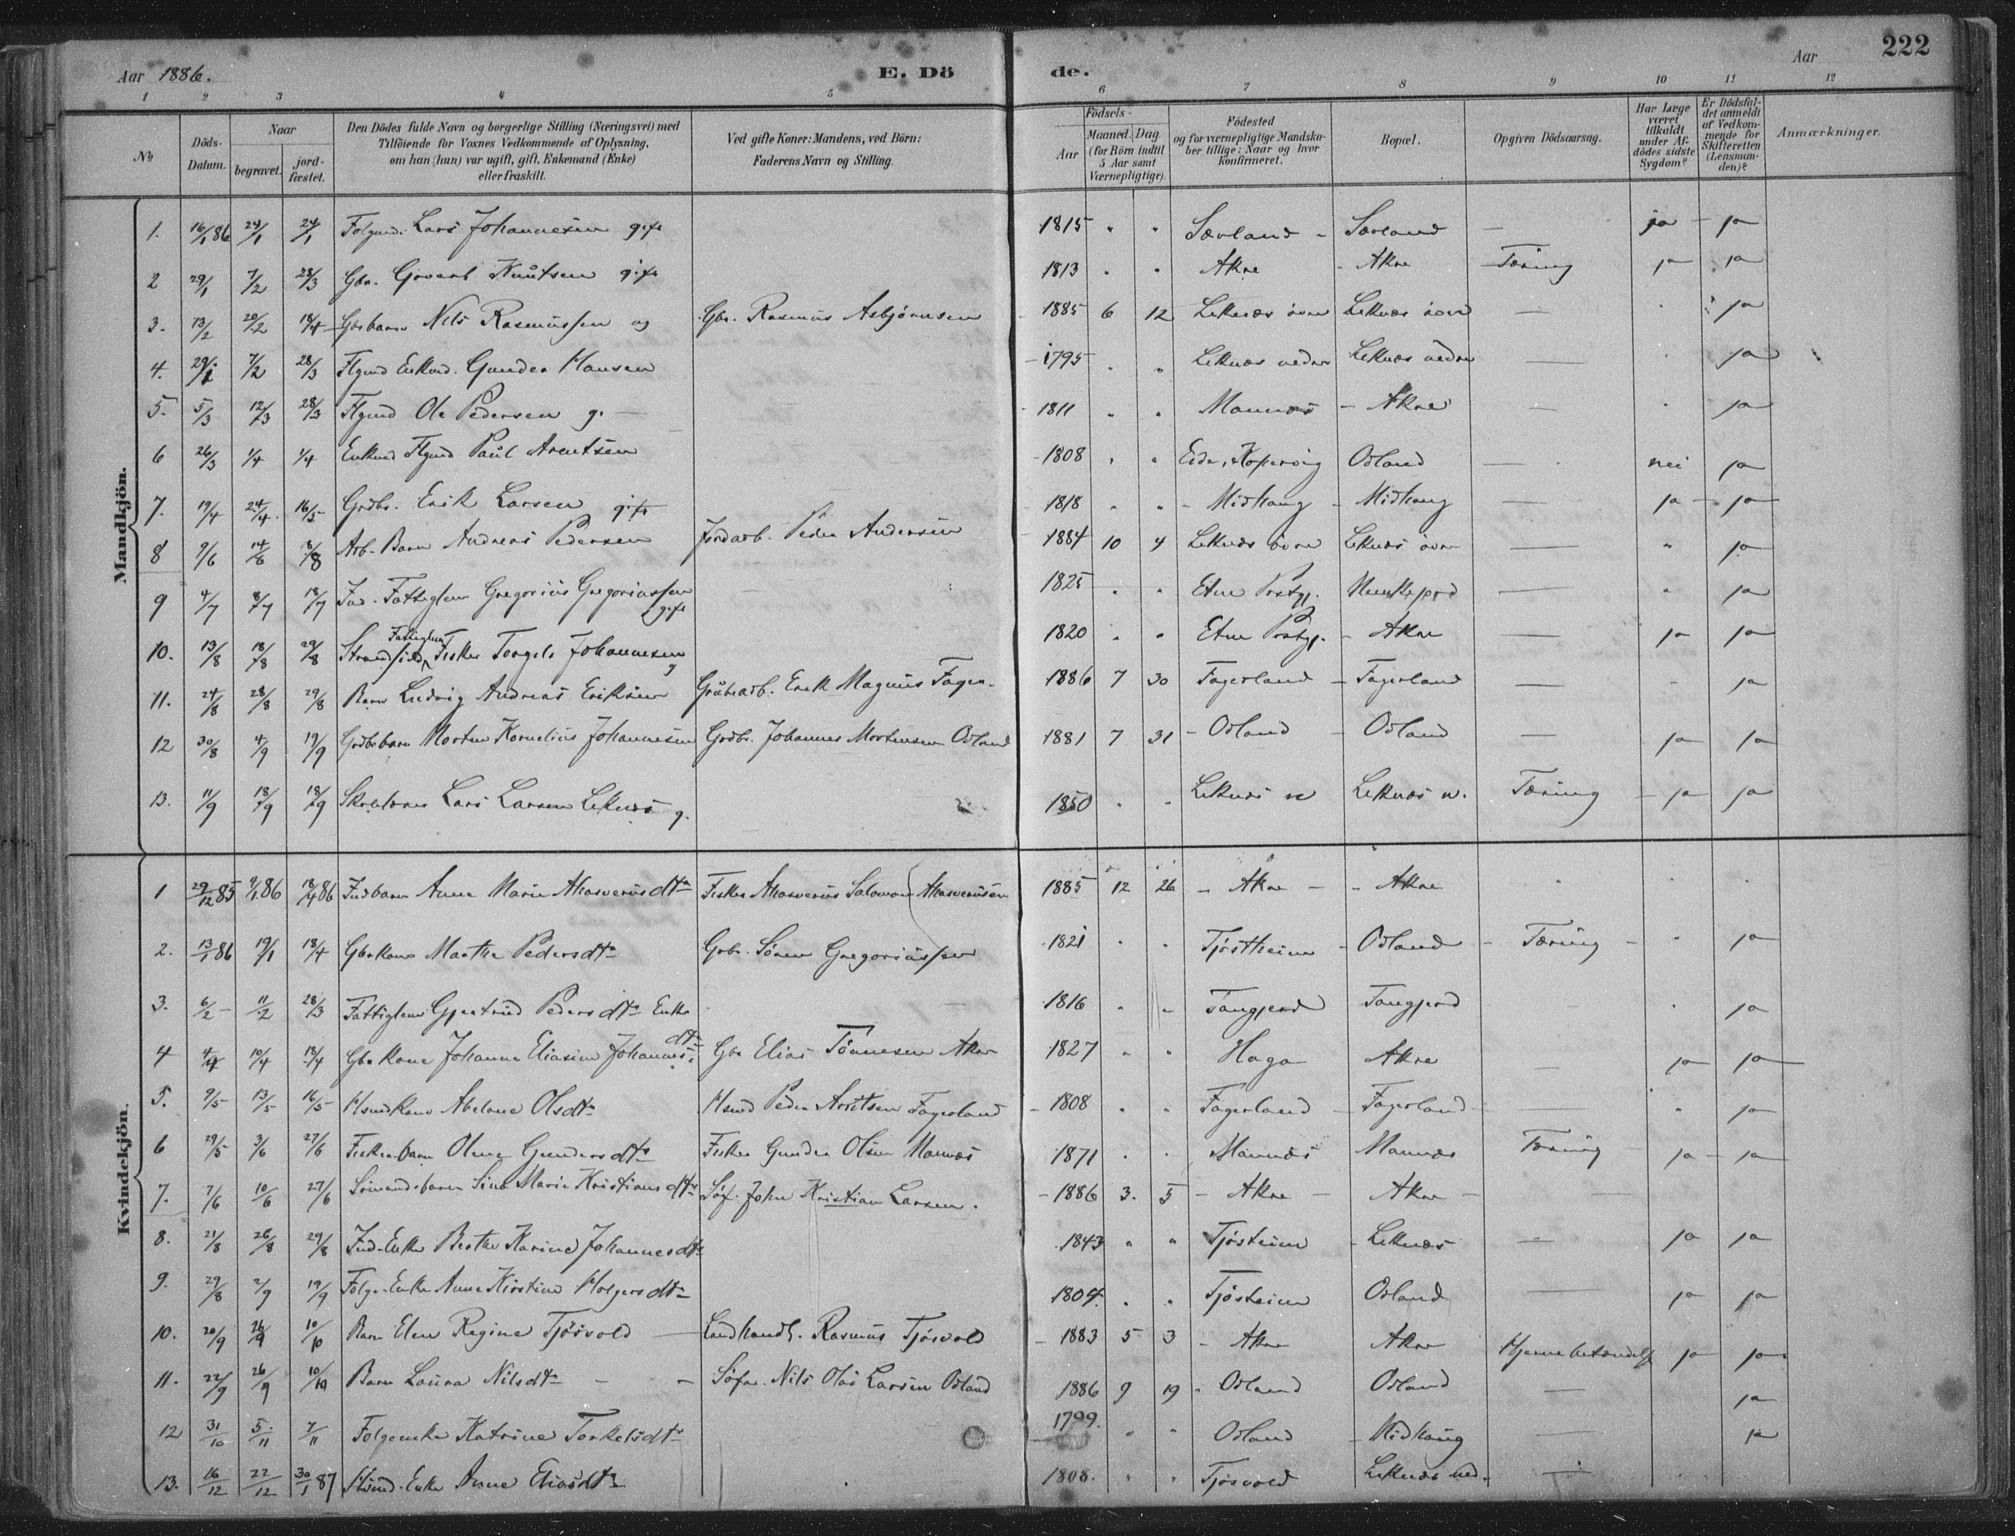 Aar 1886. E. Dö de. Aar 222
1 2 3 4 5 6 7 8 9 10 11 12
No
Döds-Datum.
Naar
begravet.
jord-fæstet.
Den Dödes fulde Navn og borgerlige Stilling (Næringsvei) med
Tilföiende for Voxnes Vedkommende af Oplysning,
om han (hun) var ugift, gift, Enkemand (Enke)
eller fraskilt.
Ved gifte Koner: Mandens, ved Börn:
Faderens Navn og Stilling.
Födsels-
Aar
Maaned. Dag.
(for Börn indtil
5 Aar samt
Værnepligtige).
Födested
og for værnepligtige Mandska-
ber tillige: Naar og hvor
konfirmeret.
Bopæl.
Opgiven Dödsaarsag.
Har Læge
været
tilkaldt
under Af-
dödes sidste
Sygdom?
Er Dödsfal-
det anmeldt
af Vedkom-
mende for
Skifteretten
(Lensman-
den)?
Anmærkninger.
Mandkjön.
1. 16/1 86 24/1 24/1 Folgmd. Lars Johannesen gift 1815 " " Sævland - Sævland — ja - ja
2 29/1 7/2 28/3 Gbr. Govert Knutsen gift 1813 " " Akre - Akre Tæring ja ja
3. 13/2 20/2 18/4 Gbrbarn Nils Rasmussen ug Gbr. Rasmus Asbjørnsen 1885 6 12 Leknæs øvre Leknæs øvre — " ja
4. 29/1 7/2 28/3 Flgmd Enkmd. Gunder Hansen 1795 " " Leknæs nedre Leknæs nedre — " ja
5. 5/3 12/3 28/3 Flgmd Ole Pedersen g. — 1811 " " Mannæs - Akre — " ja
6 26/3 1/4 1/4 Enkmd Flgmd Paul Arentsen 1808 " " Eide, Kopervig Odland — nei ja
7. 19/4 24/4 16/5 Grdbr. Erik Larsen gift 1818 " " - Midhaug - Midhaug — ja - ja
8 9/6 14/6 8/8 Arb. Barn Andreas Pedersen Jordarb. Peder Andersen 1884 10 4 Leknæs øvre Leknæs øvre — " ja
9 4/7 8/7 18/7 Ind. Fattiglem Gregorius Gregoriussen gift 1825 " " Etne Prstgj. — " ja
10. 13/8 18/8 29/8 Strandsidd. Fattiglem Fisker Torgils Johannesen g 1820 " " Etne Prstgj. - Akre ja ja
11. 24/8 28/8 29/8 Barn Ludvig Andreas Eriksen Grubearb. Erik Magnus Fager- 1886 7 30 Fagerland - Fagerland — - ja
12 30/8 4/9 19/9 Grdbrbarn Morten Kornelius Johannesen Grdbr. Johannes Mortensen Odland 1881 7 31 - Odland - Odland — ja ja
13. 11/9 18/9 18/9 Lars Larsen Leknæs g. 1850 " " Leknæs n Leknæs n. Tæring - ja ja
Kvindekjön.
1 29/12 85 9/1 86 18/4 86 Indbarn Anne Marie Ahasverusdtr Fisker Ahasverus Salomon Ahasverusen 1885 12 26 - Akre - - Akre " " "
2. 13/1 86 19/1 18/4 Gbrkone Marthe Pedersdtr Grbr. Sören Gregoriussen 1821 " " Tjöstheim - Odland - Tæring - " ja
3. 6/2 - 11/2 28/3 Fattiglem Gjertrud Pedersdtr Enke 1816 " " Tangjerd Tangjerd " ja
4 4/4 10/4 18/4 Gbr Kone Johanne Eliasine Johannesdtr Gbr Elias Tönnesen Akre 1827 " " Haga Akre — ja ja
5. 9/5 13/5 16/5 Hsmdkone Abelone Olsdtr Hsmd Peder Fagerland 1808 " " Fagerland - Fagerland — " ja
6 29/5 3/6 27/6 Fiskerbarn Olene Gundersdtr Fisker Gunder Olsen Mannæs 1871 " " Mannæs Mannæs Tæring ja - ja
7. 7/6 10/6 27/6 Sömandsbarn Sine Marie Kristiansdtr Söf. John Kristian Larsen. 1886 3. 5 - Akre - Akre -
8. 21/8 26/8 29/8 Ind.Enke Berthe Karine Johannesdtr 1843 " " Tjösteim - Leknæs — ja ja
9. 29/8 2/9 19/9 Folge.Enke Anne Kirstine Holgersdtr 1804. " " Tjösteim Odland — ja ja
10. 20/9 26/9 10/10 Barn Elen Regine Tjösvold — Landhandl. Rasmus Tjösvold 1883 5 3 - Akre Akre Hjernebetændelse ja ja
11. 22/9 26/9 10/10 Barn Laura Nilsdtr - - Söfar. Nils Olai Larsen Odland 1886 9 19 " Odland Odland — ja
12 31/10 5/11 7/11 Folgeenke Katrine Torkelsdtr 1799. " " Odland - Midhaug — ja
13. 16/12 22/12 30/1 87 Hsmd. Enke Anne Eliasdtr 1808. " " Tjösvold Leknæs ned. —